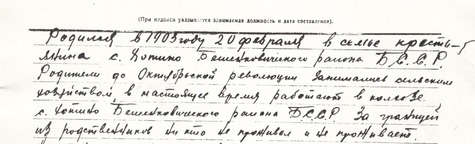 (При подписи указывается занимаемая должность и дата составления).
Родился в 1903 году 20 февраля в семье кресть-
янина с. Копино Бешенковичского района Б.С.С.Р.
Родители до Октябрьской революции занимались сельским
хозяйством в настоящее время работают в колхозе
с. Копино Бешенковичского района БССР За границей
из родственников ни кто не проживал и не проживает.